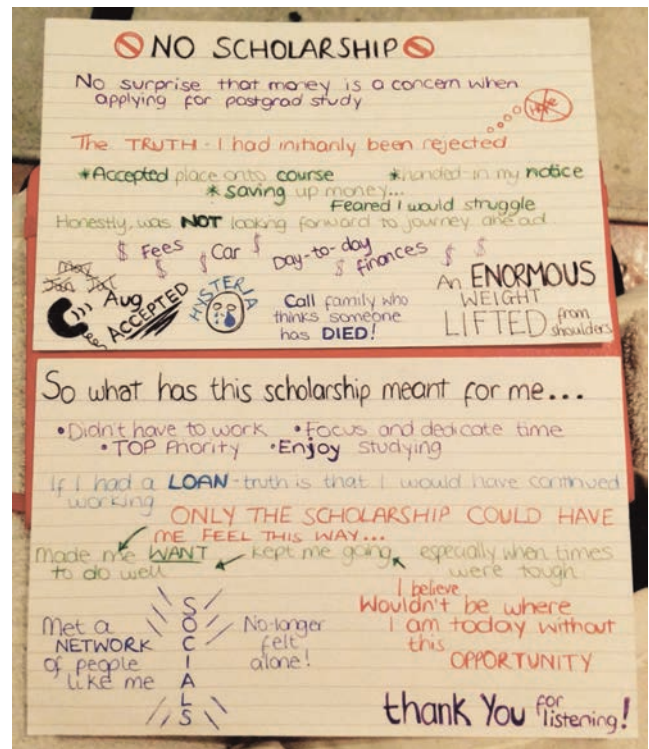 NO SCHOLARSHIP
No surprise that money is a concern when
applying for postgrad study
Hope
The TRUTH - I had initially been rejected
*Accepted place onto course *handed-in my notice
*saving up money...
Feared I would struggle
Honestly, was NOT looking forward to journey ahead
$ Fees $ Car $ Day-to-day $ finances $ $
May
Jan Jul
Aug
ACCEPTED
HYSTERIA
Call family who
thinks someone
has DIED!
An ENORMOUS
WEIGHT
LIFTED from
shoulders
So what has this scholarship meant for me...
•Didn't have to work •Focus and dedicate time
•TOP Priority •Enjoy studying
If I had a LOAN - truth is that I would have continued
working
ONLY THE SCHOLARSHIP COULD HAVE
ME FEEL THIS WAY...
Made me WANT kept me going especially when times
to do well were tough
Met a
NETWORK
of people
like me
SOCIALS
No-longer
felt
alone!
I believe
Wouldn't be where
I am today without
this
OPPORTUNITY
thank You for
listening!